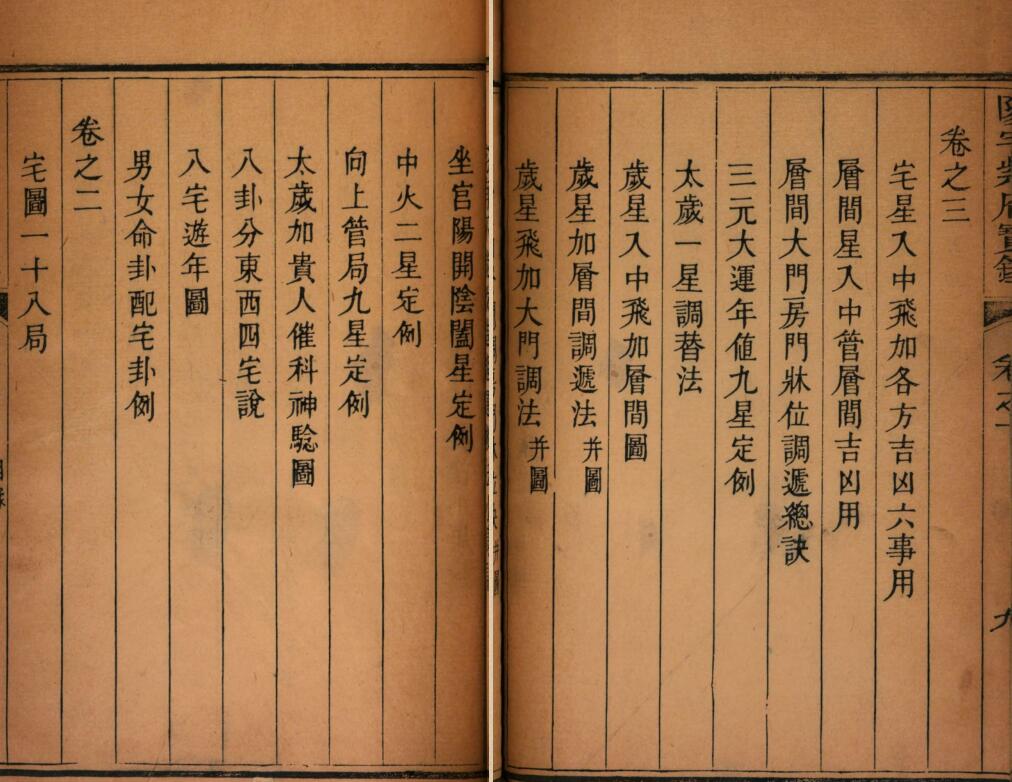 坐宮陽開陰闔星定例
中火二星定例
向上管局九星定例
太歲加貴人催科神驗圖
八卦分東西四宅說
八宅遊年圖
男女命卦配宅卦例
卷之二
宅圖一十八局
卷之三
宅星入中飛加各方吉凶六事用
層間星入中管層間吉凶用
層間大門房門牀位調遞總訣
三元大運年值九星定例
太歲一星調替法
歲星入中飛加層間圖
歲星加層間調遞法 并圖
歲星飛加大門調法 并圖